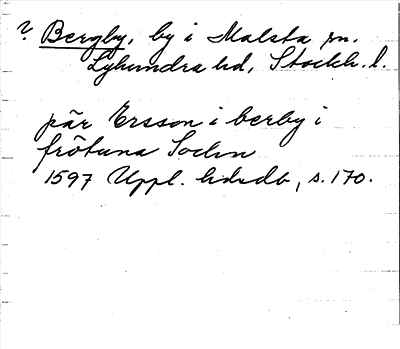 ? Bergby, by i Malsta sn.
Lyhundra hd, Stockh. l.
pär Ersson i berby i
frötuna Sochn
1597 Uppl. hdrdb, s. 170.